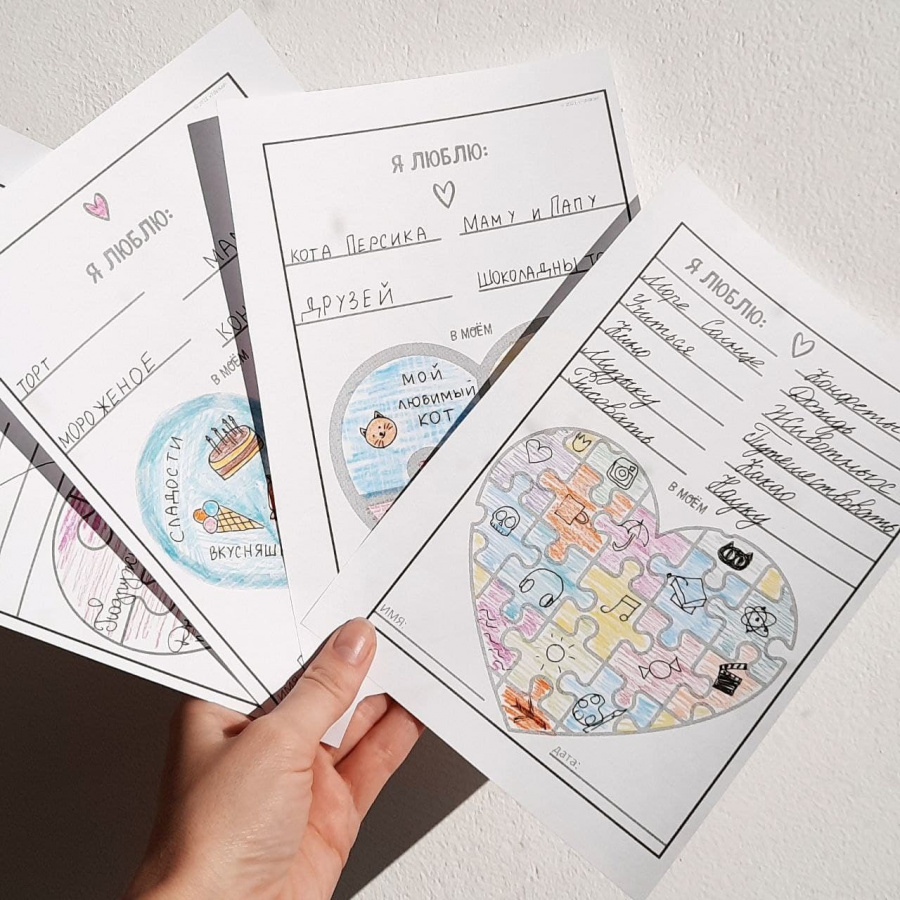 Я ЛЮБЛЮ:
ТОРТ
МОРОЖЕНОЕ
В МОЁМ
СЛАДОСТИ
Я ЛЮБЛЮ:
КОТА ПЕРСИКА
МАМУ И ПАПУ
ДРУЗЕЙ
В МОЁМ
МОЙ
ЛЮБИМЫЙ
КОТ
Я ЛЮБЛЮ:
Море Солнце
Учиться
Кино
Музыку
Рисовать
Дождь
Животных
Путешествовать
Какао
Науку
В МОЁМ
ИМЯ:
дата: